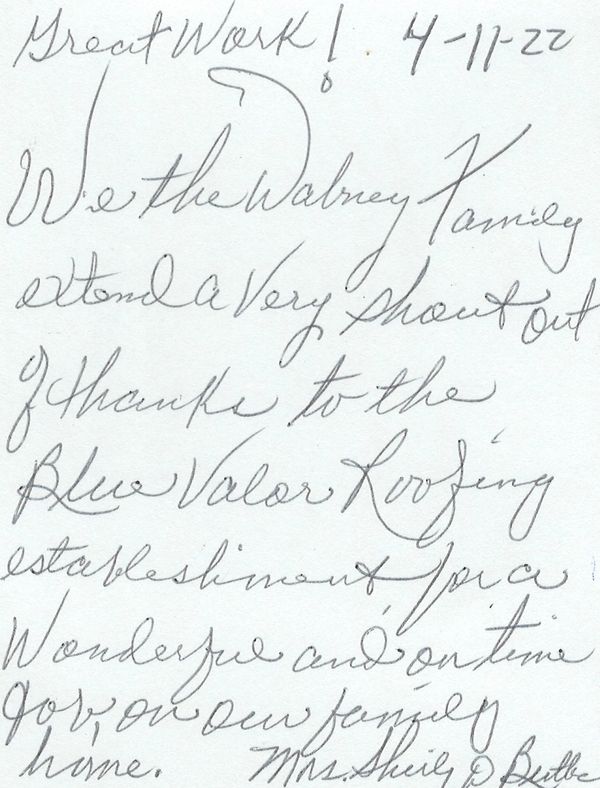 Great Work! 4-11-22
We the Dabney Family
extend a Very shout out
of thanks to the
Blue Valor Roofing
establishment for a
Wonderful and on time
Job, on our family
home. Mrs. D